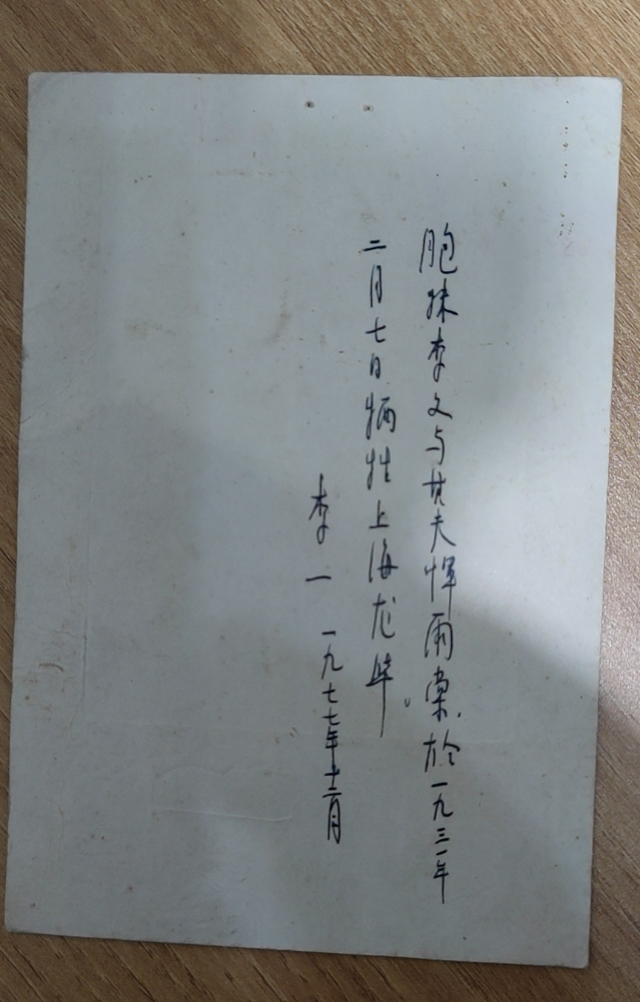 胞妹李文与其夫恽雨棠，於一九三一年
二月七日牺牲上海龙华。
李一 一九七七年十二月